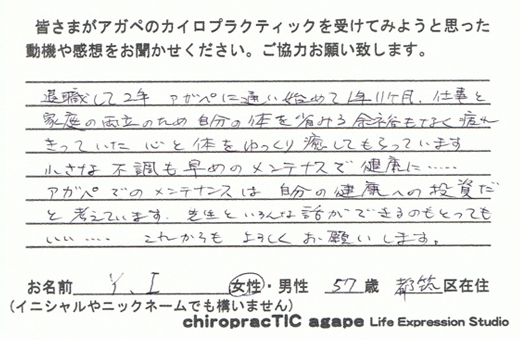 皆さまがアガペのカイロプラクティックを受けてみようと思った
動機や感想をお聞かせください。ご協力お願い致します。
退職して2年 アガペに通い始めて1年11ケ月、仕事と
家庭の両立のため自分の体を省みる余裕もなく疲れ
きっていた 心と体をゆっくり癒してもらっています
小さな不調も早めのメンテナスで健康に……
アガペでのメンテナンスは 自分の健康への投資だ
と考えています。先生といろんな話ができるのもとっても
いい…. これからも よろしくお願いします。
お名前 Y.I 女性・男性 57歳 都筑区在住
(イニシャルやニックネームでも構いません)
chiropracTIC agape Life Expression Studio